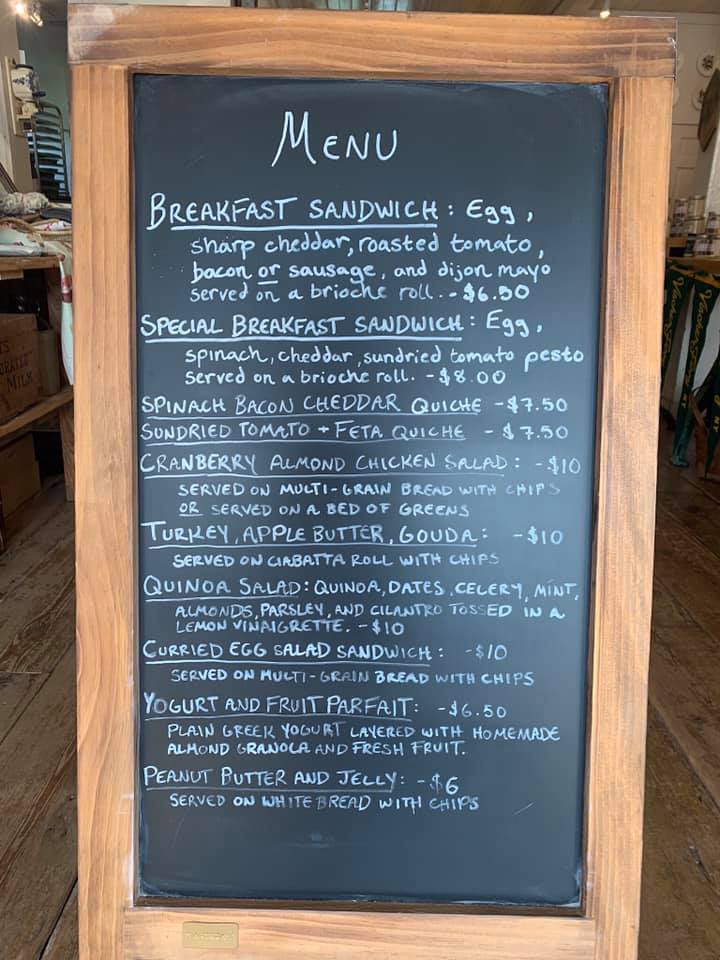 MENU
BREAKFAST SANDWICH: Egg,
sharp cheddar, roasted tomato,
bacon or sausage, and dijon mayo
served on a brioche roll. - $6.50
SPECIAL BREAKFAST SANDWICH: Egg,
spinach, cheddar, sundried tomato pesto
served on a brioche roll. - $8.00
SPINACH BACON CHEDDAR QUICHE - $7.50
SUNDRIED TOMATO + FETA QUICHE - $7.50
CRANBERRY ALMOND CHICKEN SALAD: - $10
SERVED ON MULTI-GRAIN BREAD WITH CHIPS
OR SERVED ON A BED OF GREENS
TURKEY, APPLE BUTTER, GOUDA: - $10
SERVED ON CIABATTA ROLL WITH CHIPS
QUINOA SALAD: QUINOA, DATES, CELERY, MINT,
ALMONDS, PARSLEY, AND CILANTRO TOSSED IN A
LEMON VINAIGRETTE. - $10
CURRIED EGG SALAD SANDWICH: - $10
SERVED ON MULTI-GRAIN BREAD WITH CHIPS
YOGURT AND FRUIT PARFAIT: - $6.50
PLAIN GREEK YOGURT LAYERED WITH HOMEMADE
ALMOND GRANOLA AND FRESH FRUIT.
PEANUT BUTTER AND JELLY: - $6
SERVED ON WHITE BREAD WITH CHIPS
MILK